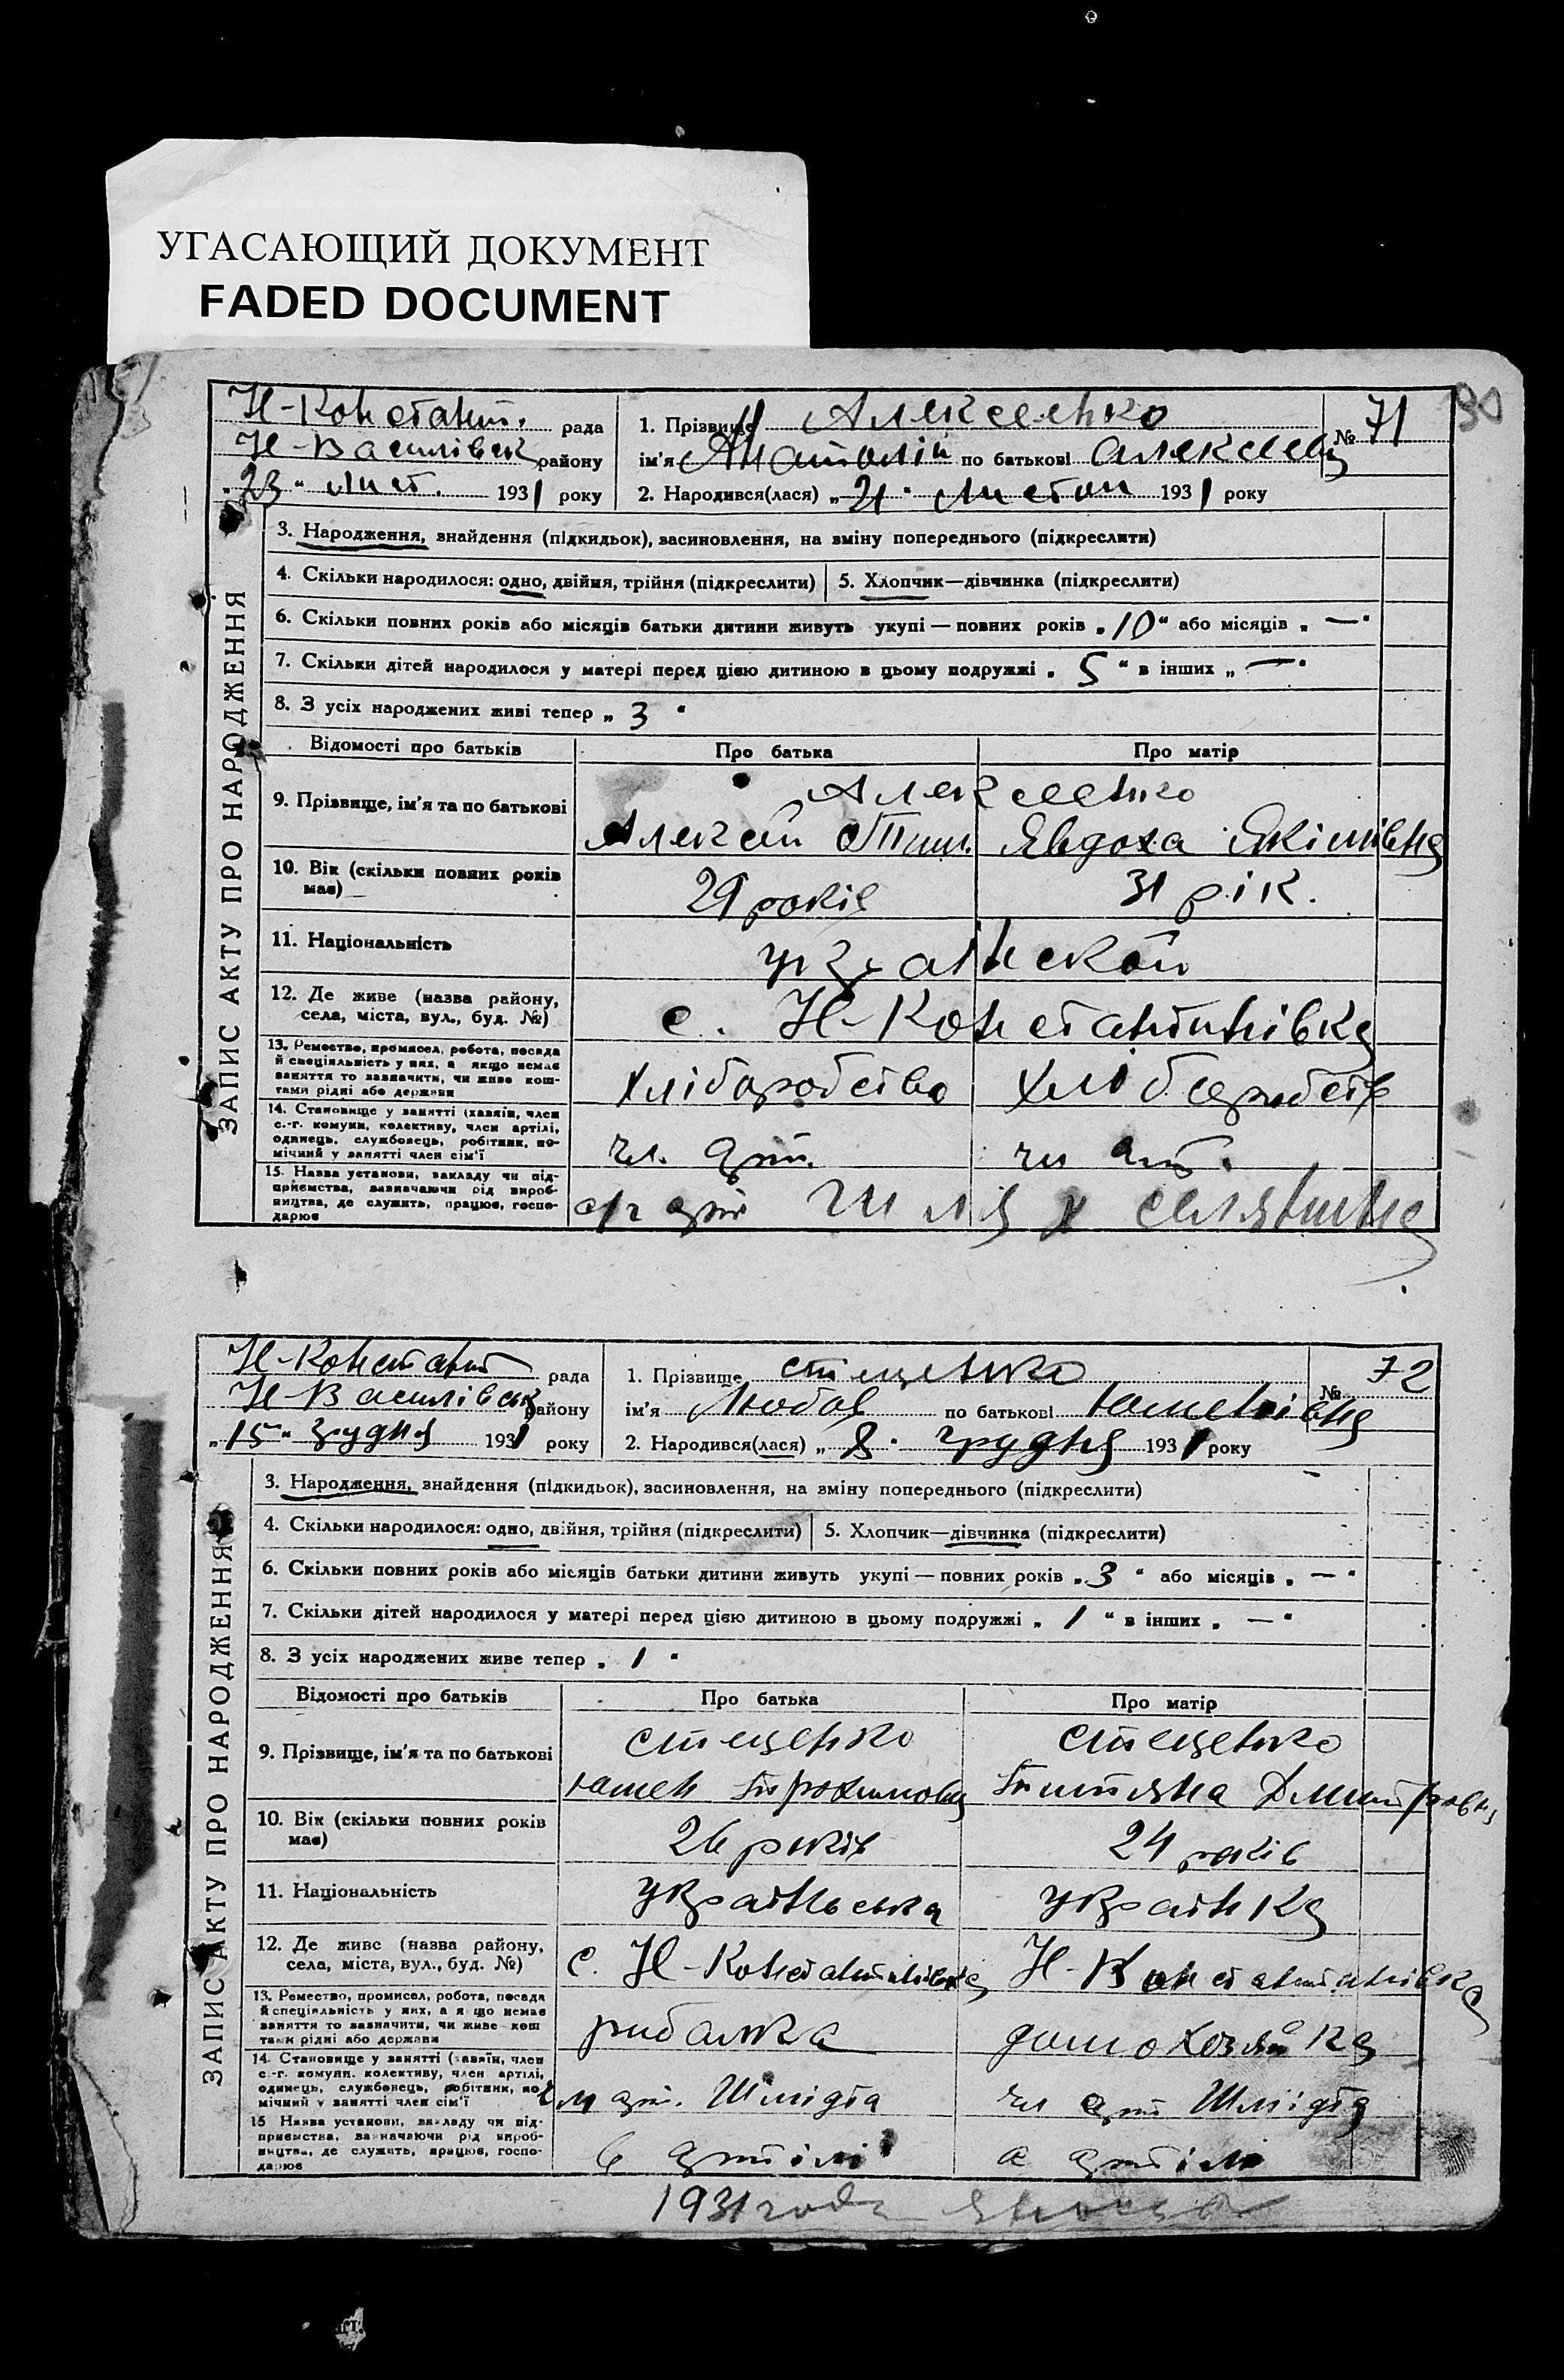 УГАСАЮЩИЙ ДОКУМЕНТ
FADED DOCUMENT
90
ЗАПИС АКТУ ПРО НАРОДЖЕННЯ
Н-Констант. рада
Н-Василівськ району
"23" лист. 1931 року
1. Прізвище Алексеенко
№ 71
ім'я Анатолій по батькові Алексеев
2. Народився(лася) „21" Листоп 1931 року
3. Народження, знайдення (підкидьок), засиновлення, на зміну попереднього (підкреслити)
4. Скільки народилося: одно, двійня, трійня (підкреслити) 5. Хлопчик—дівчинка (підкреслити)
6. Скільки повних років або місяців батьки дитини живуть укупі — повних років „10" або місяців „—"
7. Скільки дітей народилося у матері перед цією дитиною в цьому подружжі „5" в інших „—"
8. З усіх народжених живі тепер „3"
Відомості про батьків Про батька Про матір
9. Прізвище, ім'я та по батькові Алексеенко
Алексей Тим. Явдоха Якімівна
10. Вік (скільки повних років має) 29 років 31 рік.
11. Національність
12. Де живе (назва району, села, міста, вул., буд. №) с. Н-Константинівка
13. Ремество, промисел, робота, посада
й спеціяльність у них, а якщо немає
заняття то зазначити, чи живе кош-
тами рідні або держави
Хліборобство Хліборобств
14. Становище у занятті (хазяїн, член
с.-г. комуни, колективу, член артілі,
одинець, службовець, робітник, по-
мічний у занятті член сім'ї
чл. арт. чл арт.
15. Назва установи, закладу чи під-
приємства, зазначаючи рід вироб-
ництва, де служить, працює, госпо-
дарює
с/г арт
ЗАПИС АКТУ ПРО НАРОДЖЕННЯ
Н-Констант рада
Н-Василівськ району
„15" грудня 1931 року
1. Прізвище Стеценко
№ 72
ім'я Любов по батькові
2. Народився(лася) „8" грудня 1931 року
3. Народження, знайдення (підкидьок), засиновлення, на зміну попереднього (підкреслити)
4. Скільки народилося: одно, двійня, трійня (підкреслити) 5. Хлопчик—дівчинка (підкреслити)
6. Скільки повних років або місяців батьки дитини живуть укупі — повних років „3" або місяців „—"
7. Скільки дітей народилося у матері перед цією дитиною в цьому подружжі „1" в інших „—"
8. З усіх народжених живе тепер „1"
Відомості про батьків Про батька Про матір
9. Прізвище, ім'я та по батькові Стеценко Стеценко
10. Вік (скільки повних років має) 26 років 24 років
11. Національність українська українка
12. Де живе (назва району, села, міста, вул., буд. №) с. Н-Константинівка Н-Константинівка
13. Ремество, промисел, робота, посада
й спеціяльність у них, а якщо немає
заняття то зазначити, чи живе кош
тами рідні або держави
рибалка домохозяйка
14. Становище у занятті (хазяїн, член
с.-г. комуни, колективу, член артілі,
одинець, службовець, робітник, по
мічний у занятті член сім'ї
чл арт. Шмідта чл арт Шмідта
15 Назва установи, закладу чи під-
приємства, зазначаючи рід вироб-
ництва, де служить, працює, госпо-
дарює
в артілі в артілі
1931 года